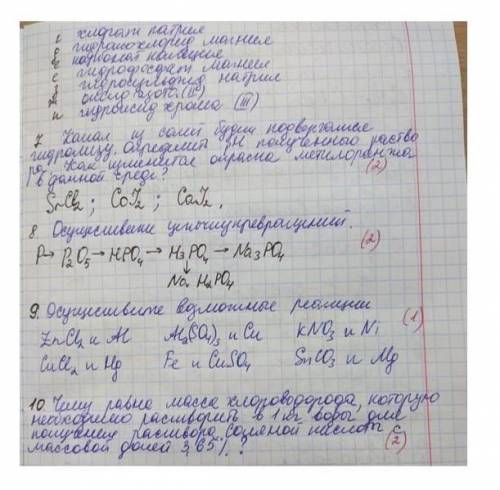 хлорат натрия
гидроксохлорид магния
карбонат кальция
гидрофосфат магния
гидросульфид натрия
оксид азота (III)
гидроксид хрома (III)
7. Какая из солей будет подвергаться
гидролизу, определить pH полученного раство
ра. Как изменится окраска метилоранжа
в данной среде? (2)
SrCl₂ ; CoI₂ ; CaI₂.
8. Осуществление цепочки превращений. (2)
P → P₂O₅ → HPO₄ → H₃PO₄ → Na₃PO₄
↓
NaH₂PO₄
9. Осуществите возможные реакции (1)
ZnCl₂ и Al Al₂(SO₄)₃ и Cu KNO₃ и Ni
CuCl₂ и Hg Fe и CuSO₄ SnCO₃ и Mg
10. Чему равна масса хлороводорода, которую
необходимо растворить в 1 кг воды для
получения раствора соляной кислоты с
массовой долей 3,65%? (2)